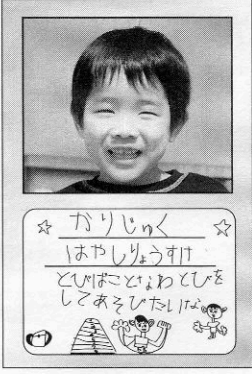 がりじゅく
はやしりょうすけ
とびばことなわとびを
してあそびたいな